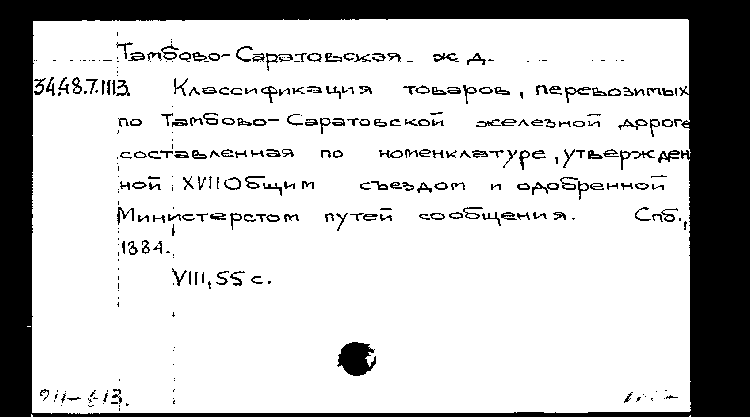 Тамбово-Саратовская ж.д.
34.48.7.1113. Классификация товаров, перевозимых
по Тамбово-Саратовской железной дороге
составленная по номенклатуре, утвержден
ной XVII Общим съездом и одобренной
Министерстом путей сообщения. Спб.,
1884.
VIII, 55 с.